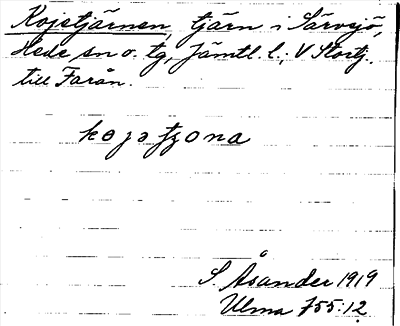 Kojstjärnen, tjärn i Särvsjö,
Hede sn o. tg, Jämtl. l.; V Stortj.
till Farån.
kojstjzona
S Åsander 1919
Ulma 755:12